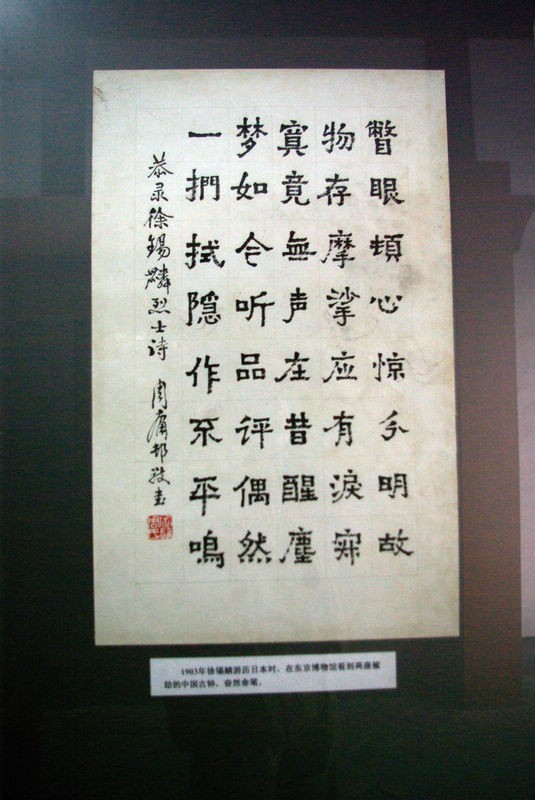 瞥眼頓心惊分明故
物存摩挲应有淚寂
寞竟無声在昔醒塵
梦如今听品评偶然
一捫拭隐作不平鳴
恭录徐锡麟烈士诗 周庸邨敬书
1903年徐锡麟游历日本时，在东京博物馆看到两座被
劫的中国古钟，奋然命笔。